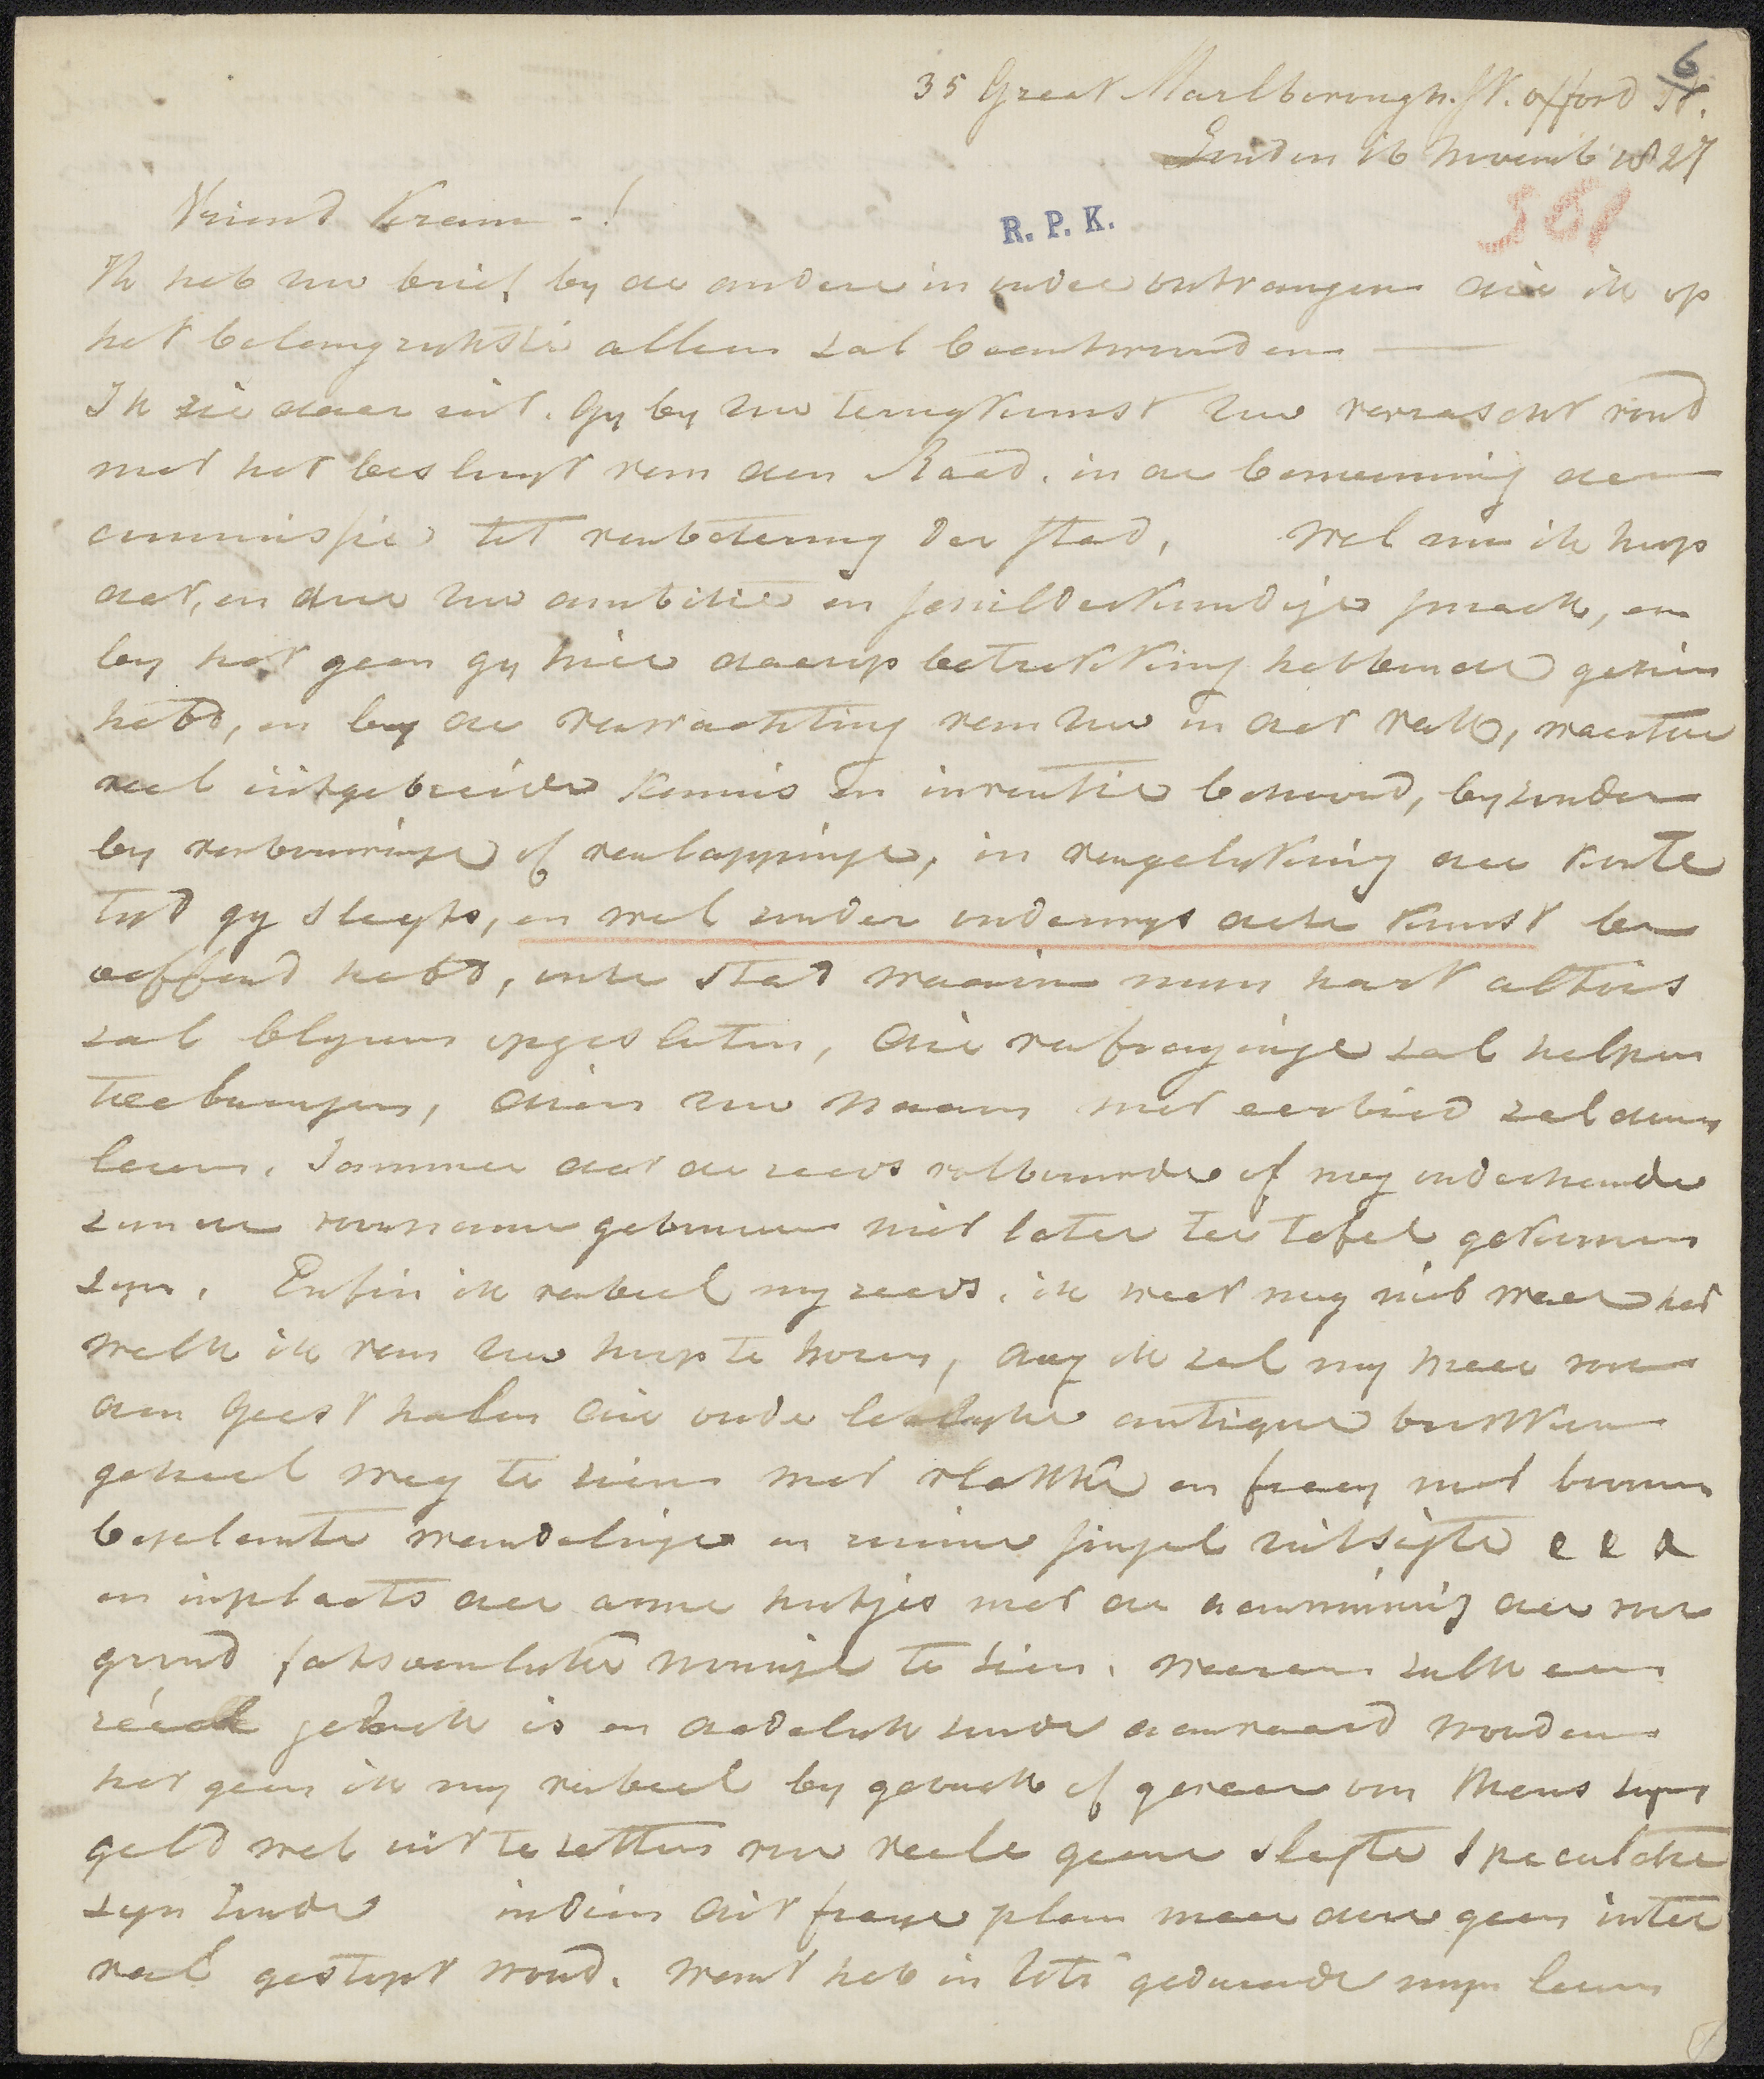 6
35 Great Marlborough. St. offord St.
Londen 16 Novemb 1827
Vriend Kram - !
R. P. K.
561
Ik heb uw brief by de andere in order ontvangen die ik op
het belangrykste alleen zal beantwoorden —
Ik zie daar uit. Gy by uw terugkomst uw verrascht vond
met het besluyt van den Raad. in de benoeming der
commissie tot verbetering der stad, Wel nu ik hoop
dat, en door uw ambitie en schilderkundige smaak, en
by het geen gy hier daarop betrekking hebbende gezien
hebd, en by de verwachting van uw in dat vak, waartoe
veel uitgebreide kennis en inventie behoord, byzonder
by verbouwinge of verlappinge, in vergelyking der korte
tyd gy slegts, en wel zonder onderwys deze kunst be
oeffend hebd, onze stad waarin myn hart altoos
zal blyven opgesloten, die verfraayinge zal helpen
toebrengen, dien uw naam met eerbied zal doen
leven. Jammer dat de reeds volbouwde of nog onderhande
zynde voorname gebouwen niet later ter tafel gekomen
zyn. Enfin ik verbeel my reeds. ik weet nog niet waar het
welk ik van uw hoop te horen, dog ik zal my maar voor
den geest halen die oude leelyke antique brokken
geheel weg te zien met vlakke en fraay met boomen
beplante wandelinge en ruime singel uitsigte e e a
en inplaats der arme hutjes met de aanwinning der voor
grond fatsoenlyke woninge te zien. waarom zulk een
gebruik is en dadelyk zoude aanvaard worden
het geen ik my verbeel by gebrek of gevaar om Mens zyn
geld wel uit te zetten voor veele geene slegte speculatie
zyn zoude indien dit fraye plan maar door geen inter
val gestopt word. want heb in lotï gedurende myn leven